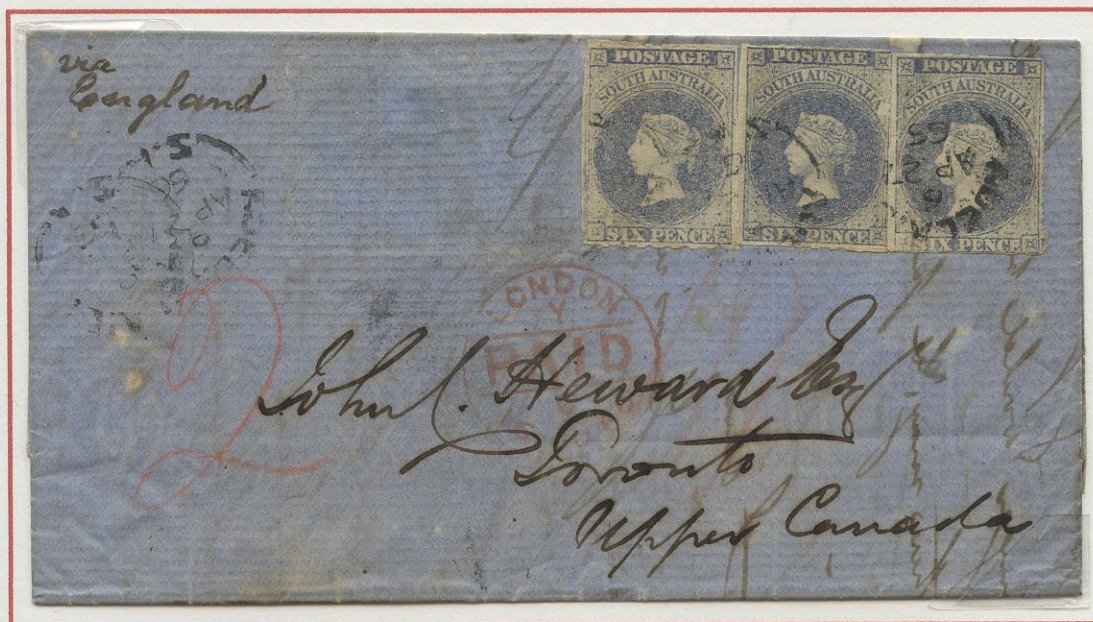 via
England
POSTAGE
SOUTH AUSTRALIA
SIX PENCE
POSTAGE
SOUTH AUSTRALIA
SIX PENCE
POSTAGE
SOUTH AUSTRALIA
SIX PENCE
ADELA
AP 27
65
LONDON
Y
PAID
2
John C. Heward Esq
Toronto
Upper Canada